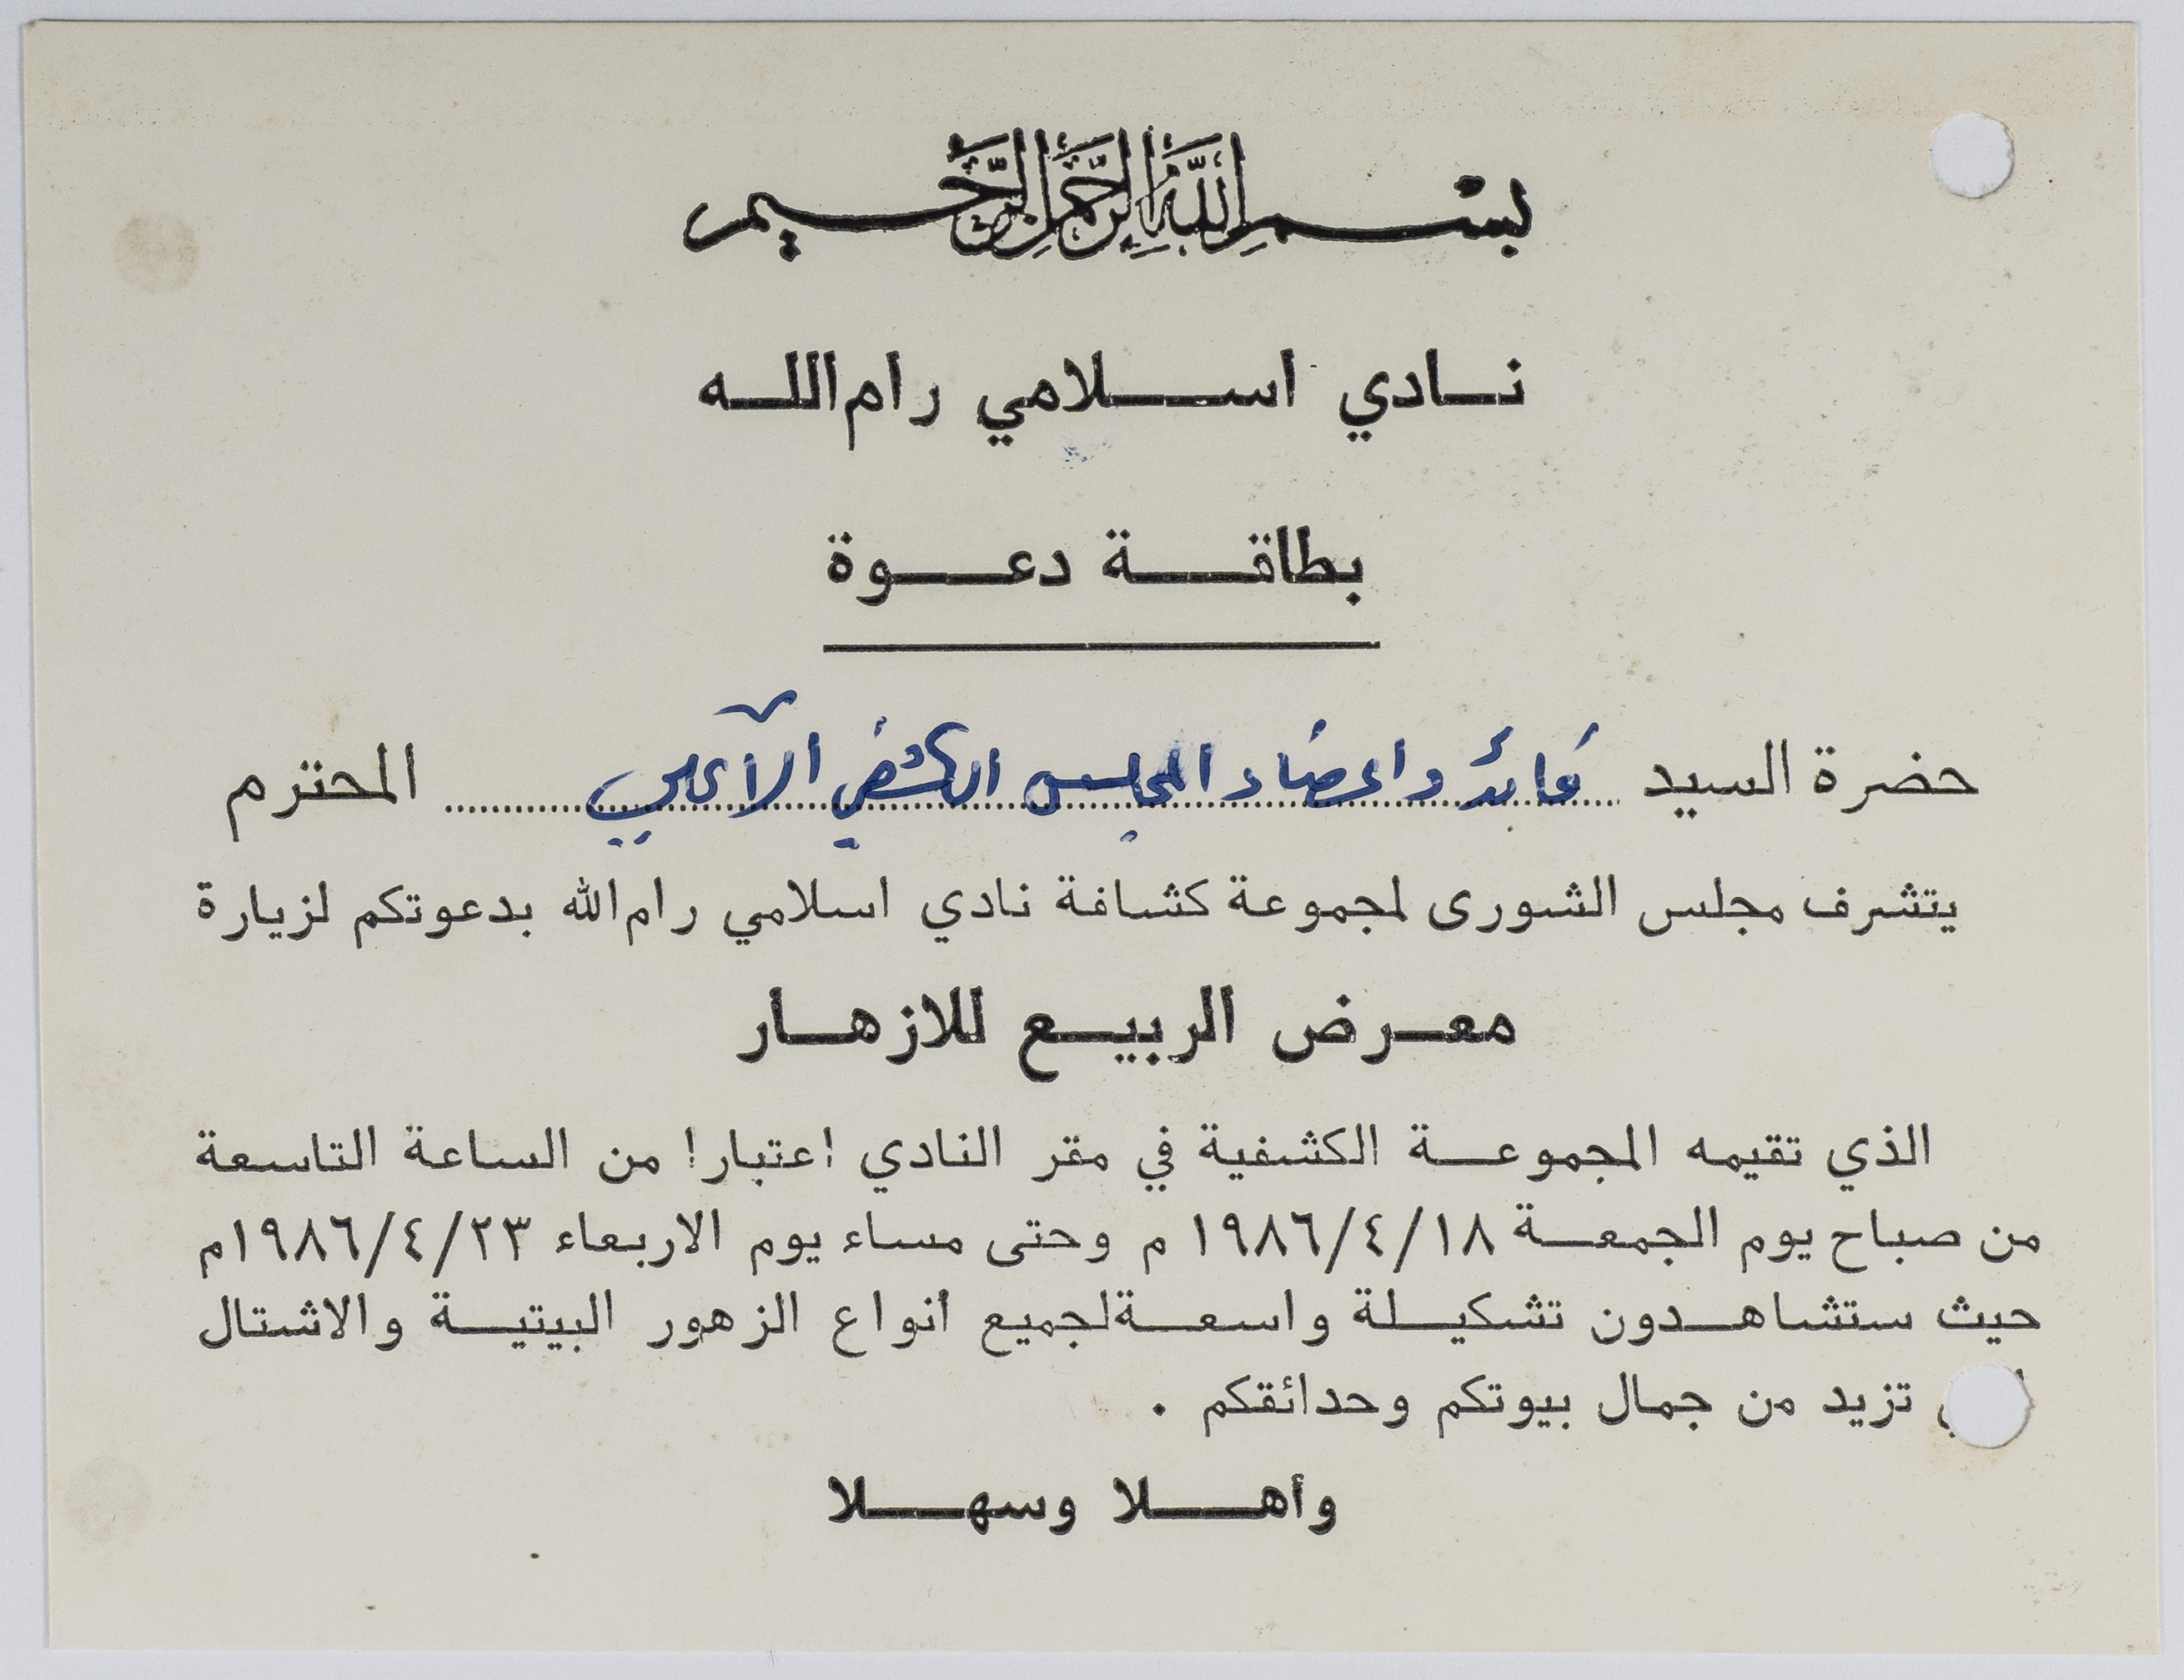 بسم الله الرحمن الرحيم
نادي اسلامي رام الله
بطاقة دعوة
حضرة السيد قائد واعضاء المجلس الكشفي الأعلى المحترم
يتشرف مجلس الشورى لمجموعة كشافة نادي اسلامي رام الله بدعوتكم لزيارة
معرض الربيع للازهار
الذي تقيمه المجموعة الكشفية في مقر النادي اعتبارا من الساعة التاسعة
من صباح يوم الجمعة ١٩٨٦/٤/١٨ م وحتى مساء يوم الاربعاء ١٩٨٦/٤/٢٣م
حيث ستشاهدون تشكيلة واسعة لجميع أنواع الزهور البيتية والاشتال
تزيد من جمال بيوتكم وحدائقكم .
وأهلا وسهلا